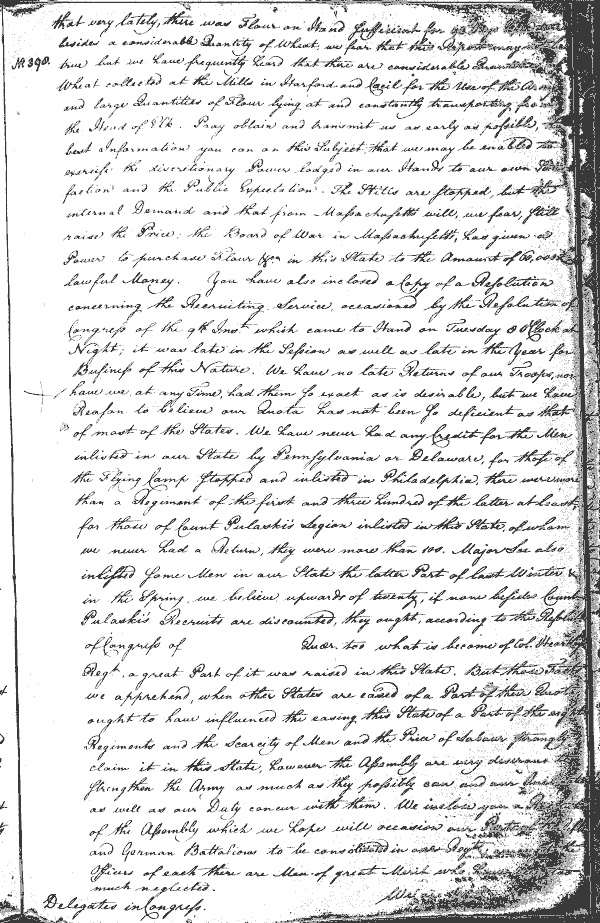 that very lately, there was Flour on Hand sufficient for
besides a considerable Quantity of Wheat, we fear that this Report may
No. 390.
true but we have frequently heard that there are considerable Quantities
Wheat collected at the Mills in Harford and Cecil for the Use of the Army
and large Quantities of Flour lying at and constantly transporting from
the Head of Elk. Pray obtain and transmit us as early as possible,
best Information you can on this Subject, that we may be enabled to
exercise the discretionary Power lodged in our Hands to our own Satis
faction and the Public Expectation. The Stills are stopped, but the
internal Demand and that from Massachusetts will, we fear, still
raise the Price; the Board of War in Massachusetts, has given a
Power to purchase Flour &ca in this State to the Amount of
lawful Money. You have also inclosed a Copy of a Resolution
concerning the Recruiting Service, occasioned by the Resolution of
Congress of the 9th Inst. which came to Hand on Tuesday 8 OClock at
Night; it was late in the Session as well as late in the Year for
Business of this Nature. We have no late Returns of our Troops, nor
have we, at any Time, had them so exact as is desirable, but we have
Reason to believe our Quota has not been so deficient as that
of most of the States. We have never had any Credit for the Men
inlisted in our State by Pennsylvania or Delaware, for those of
the Flying Camp stopped and inlisted in Philadelphia there were more
than a Regiment of the first and three hundred of the latter at least,
for those of Count Pulaskis Legion inlisted in this State, of whom
we never had a Return, they were more than 100. Major Lee also
inlisted some Men in our State the latter Part of last Winter &
in the Spring, we believe upwards of twenty, if none besides Count
Pulaski's Recruits are discounted, they ought, according to the Resolut
of Congress of Quær. too what is become of Col. Hartley
Regt. a great Part of it was raised in this State. But those Facts
we apprehend, when other States are eased of a Part of their Quota
ought to have influenced the easing this State of a Part of the eight
Regiments and the Scarcity of Men and the Price of Labour strongly
claim it in this State, however the Assembly are very desirous to
strengthen the Army as much as they possibly can and our
as well as our Duty concur with them. We inclose you a
of the Assembly which we hope will occasion our
and German Battalions to be consolidated in one Regt.
Officers of each there are Men of great Merit who
much neglected. We
Delegates in Congress.